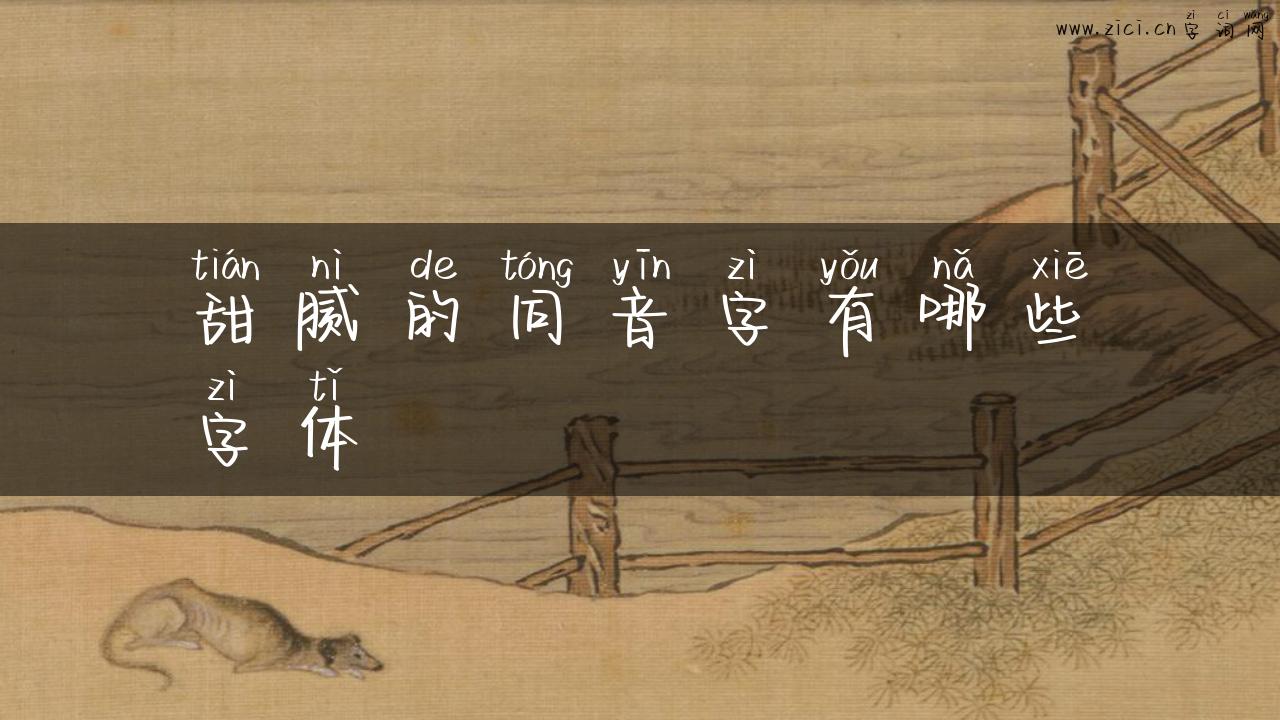 zì cí wǎng
www.zici.cn 字词网
tián nì de tóng yīn zì yǒu nǎ xiē
甜腻的同音字有哪些
zì tǐ
字体